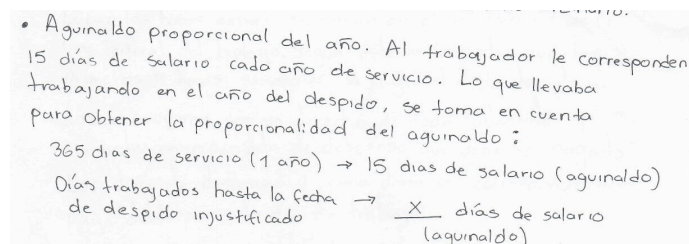 • Aguinaldo proporcional del año. Al trabajador le corresponden
15 días de salario cada año de servicio. Lo que llevaba
trabajando en el año del despido, se toma en cuenta
para obtener la proporcionalidad del aguinaldo:
365 dias de servicio (1 año) → 15 dias de salario (aguinaldo)
Días trabajados hasta la fecha → x días de salario
de despido injustificado (aguinaldo)